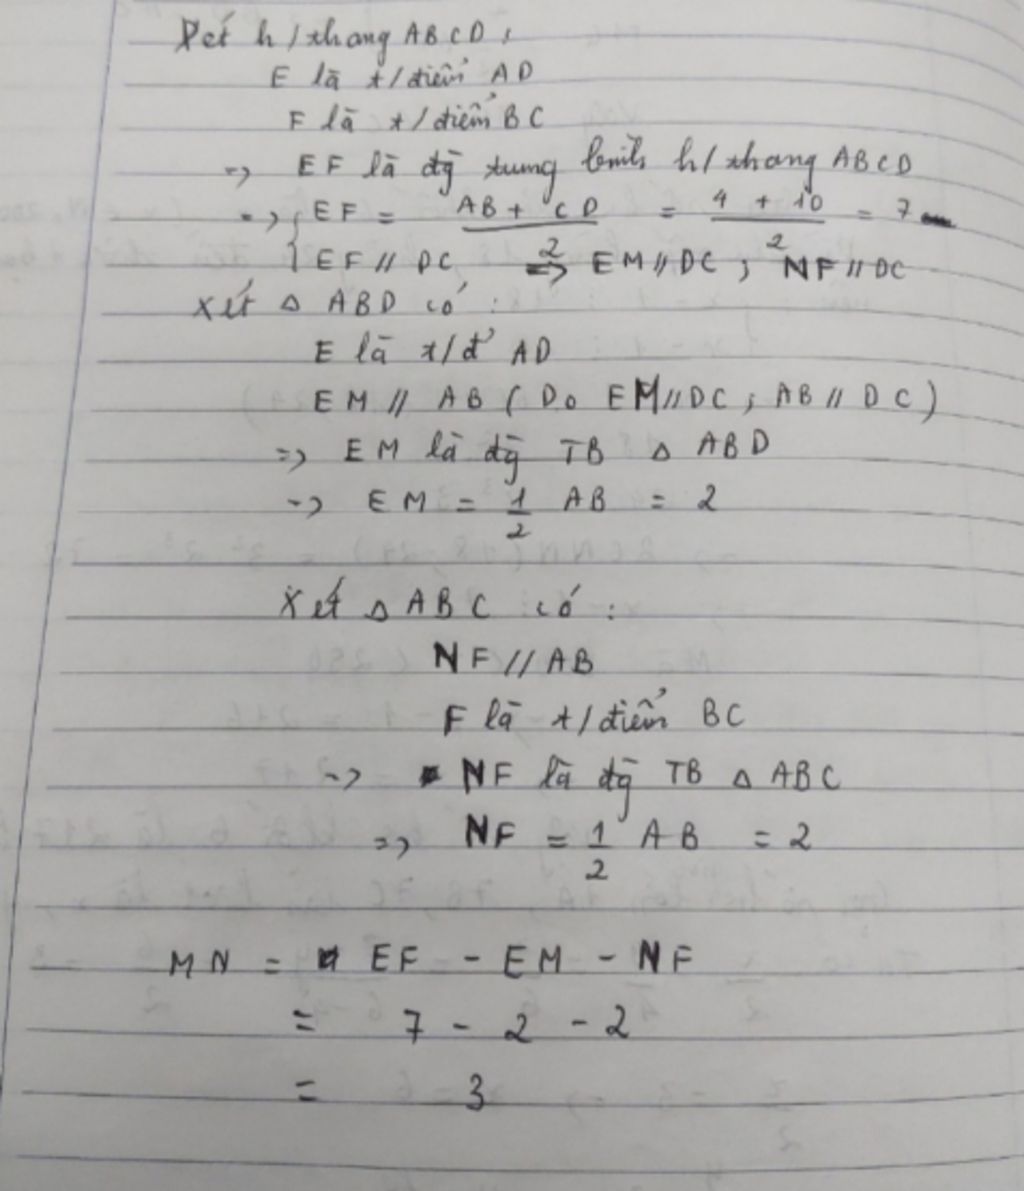 Xét h/thang ABCD :
E là t/điểm AD
F là t/điểm BC
=> EF là đg trung bình h/thang ABCD
=> { EF = AB + CD / 2 = 4 + 10 / 2 = 7
EF // DC => EM // DC ; NF // DC
Xét Δ ABD có :
E là t/đ' AD
EM // AB ( Do EM // DC ; AB // DC )
=> EM là đg TB Δ ABD
=> EM = 1/2 AB = 2
Xét Δ ABC có :
NF // AB
F là t/điểm BC
=> NF là đg TB Δ ABC
=> NF = 1/2 AB = 2
MN = EF - EM - NF
= 7 - 2 - 2
= 3